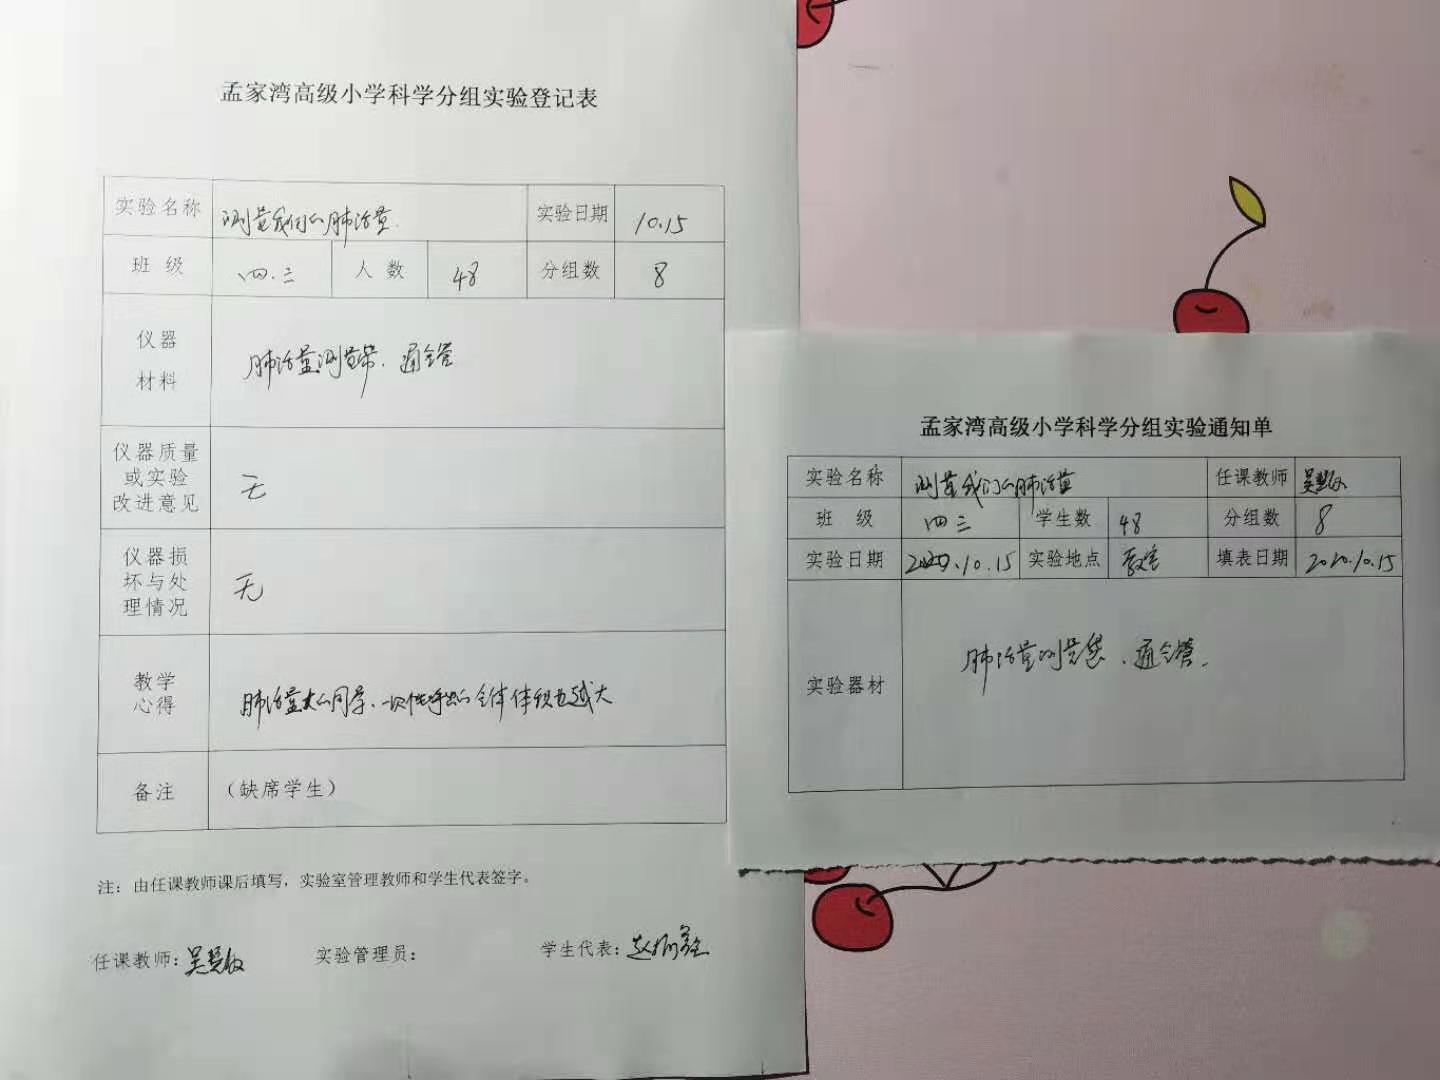 孟家湾高级小学科学分组实验登记表
实验名称 测量我们的肺活量. 实验日期 10.15
班 级 四.三 人 数 48 分组数 8
仪器
材料
肺活量测量袋、通气管
仪器质量
或实验
改进意见
无
仪器损
坏与处
理情况
无
教学
心得
肺活量大的同学、一次性呼出的气体体积也越大
备注 （缺席学生）
注：由任课教师课后填写，实验室管理教师和学生代表签字。
任课教师：吴慧敏 实验管理员： 学生代表：赵
孟家湾高级小学科学分组实验通知单
实验名称 测量我们的肺活量 任课教师 吴慧敏
班 级 四三 学生数 48 分组数 8
实验日期 2020.10.15 实验地点 教室 填表日期 2020.10.15
实验器材 肺活量测量袋、通气管.